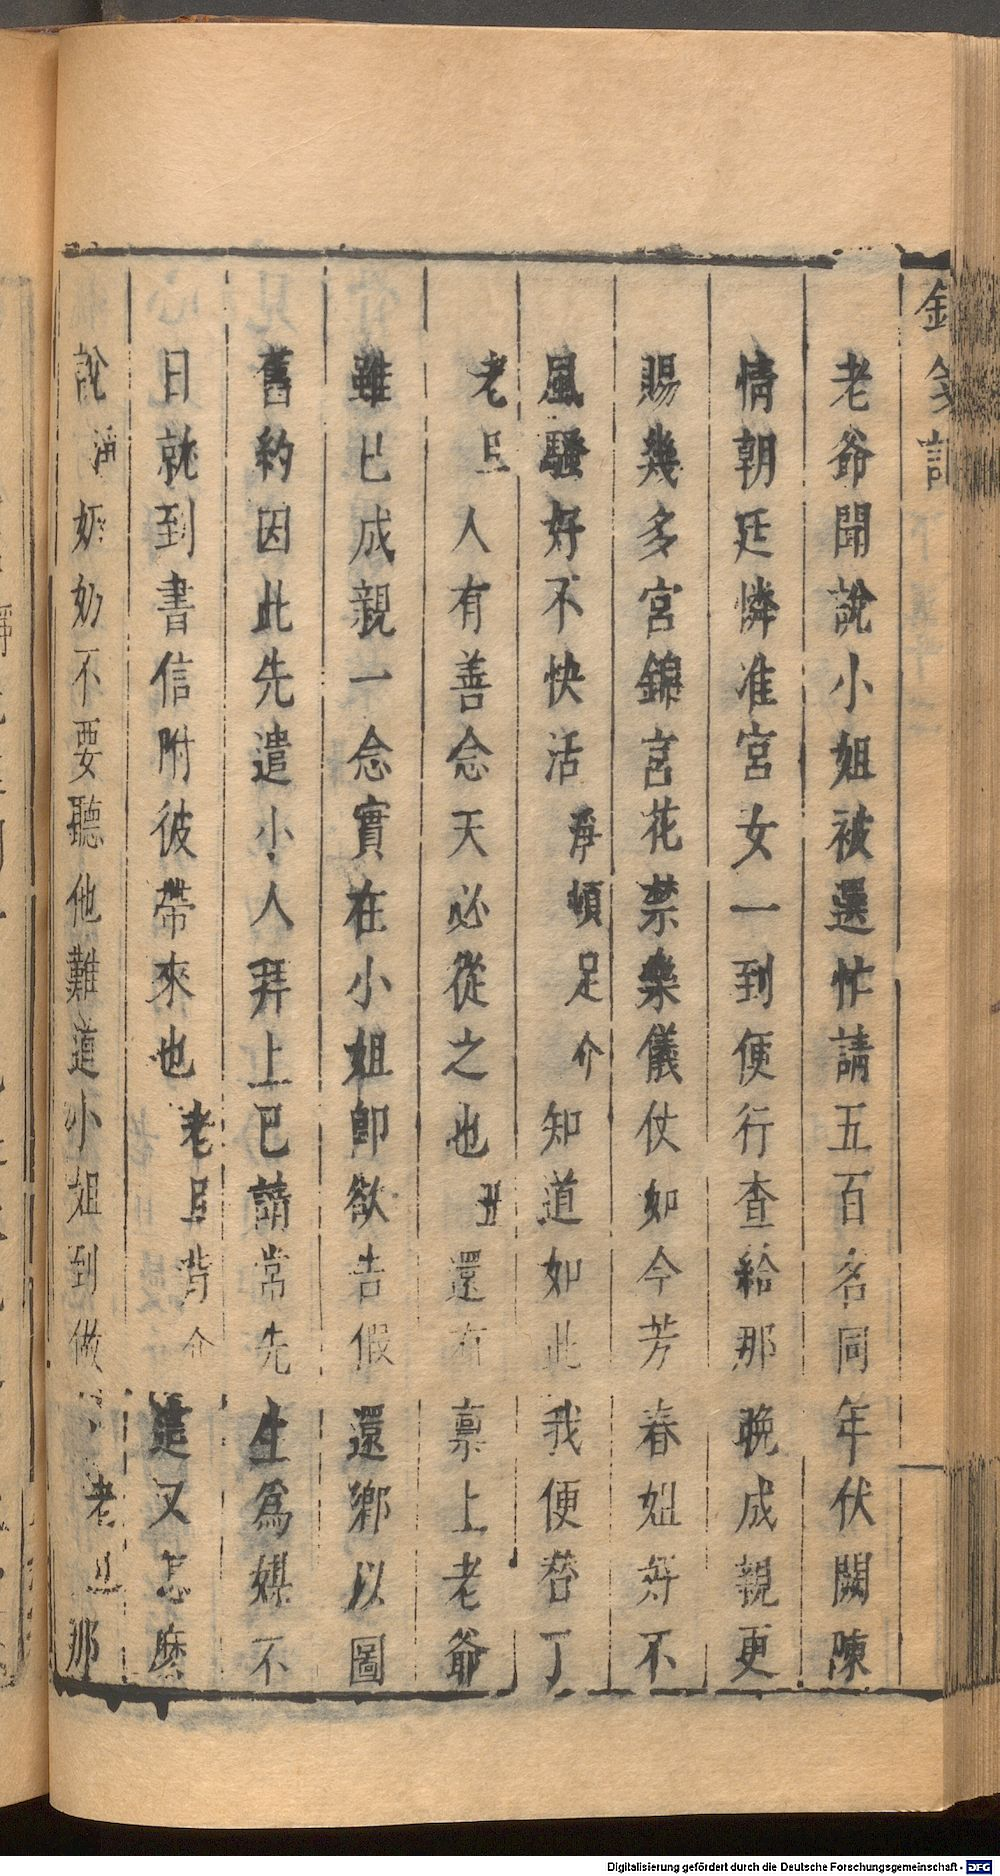 老爺聞說小姐被選忙請五百名同年伏闕陳
情朝廷憐准宮女一到便行查給那晚成親更
賜幾多宮錦宮花禁樂儀仗如今芳春姐好不
風騷好不快活淨頓足介知道如此我便替丁
老旦人有善念天必從之也丑還有稟上老爺
雖已成親一念實在小姐卽欲告假還鄉以圖
舊約因此先遣小人拜上已請常先生爲媒不
日就到書信附彼帶來也老旦背介這又怎麽
說淨奶奶不要聽他難道小姐到做老旦那
Digitalisierung gefördert durch die Deutsche Forschungsgemeinschaft - DFG